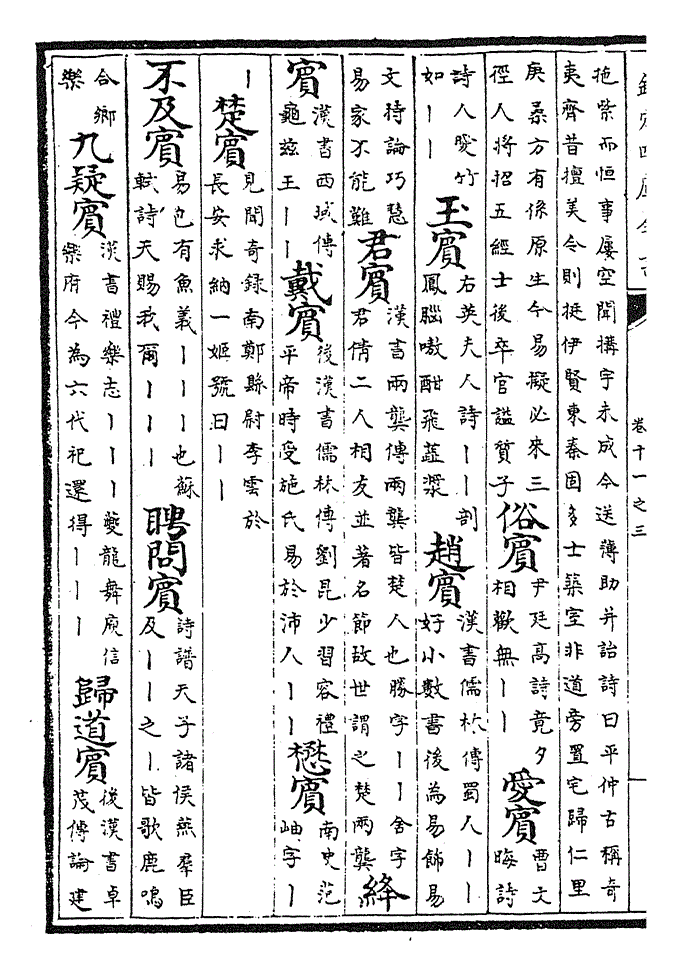 欽定四庫全書
卷十一之三
拖紫而恒事屢空聞搆宇未成今送薄助并詒詩曰平仲古稱奇
夷齊昔擅美令則挺伊賢東秦固多士築室非道旁置宅歸仁里
庚桑方有係原生今易擬必來三
徑人將招五經士後卒官謚質子
俗賓
尹廷高詩竟夕
相歡無丨丨
愛賓
曹文
晦詩
詩人愛竹
如丨丨
玉賓
右英夫人詩丨丨剖
鳳腦嗷酣飛漿
趙賓
漢書儒林傳蜀人丨丨
好小數書後為易飾易
文持論巧慧
易家不能難
君賓
漢書兩龔傳兩龔皆楚人也勝字丨丨舍字
君倩二人相友並著名節故世謂之楚兩龔
絳
賓
漢書西域傳
龜兹王丨丨
戴賓
後漢書儒林傳劉昆少習容禮
平帝時受施氏易於沛人丨丨
懋賓
南史范
岫字丨
丨
楚賓
見聞奇録南鄭縣尉李雲於
長安求納一姬號曰丨丨
不及賓
易包有魚義丨丨丨也蘇
軾詩天賜我爾丨丨丨
聘問賓
詩譜天子諸侯燕羣臣
及丨丨之丨皆歌鹿鳴
合鄉
樂
九疑賓
漢書禮樂志丨丨丨夔龍舞庾信
樂府今為六代祀還得丨丨丨
歸道賓
後漢書卓
茂傳論建